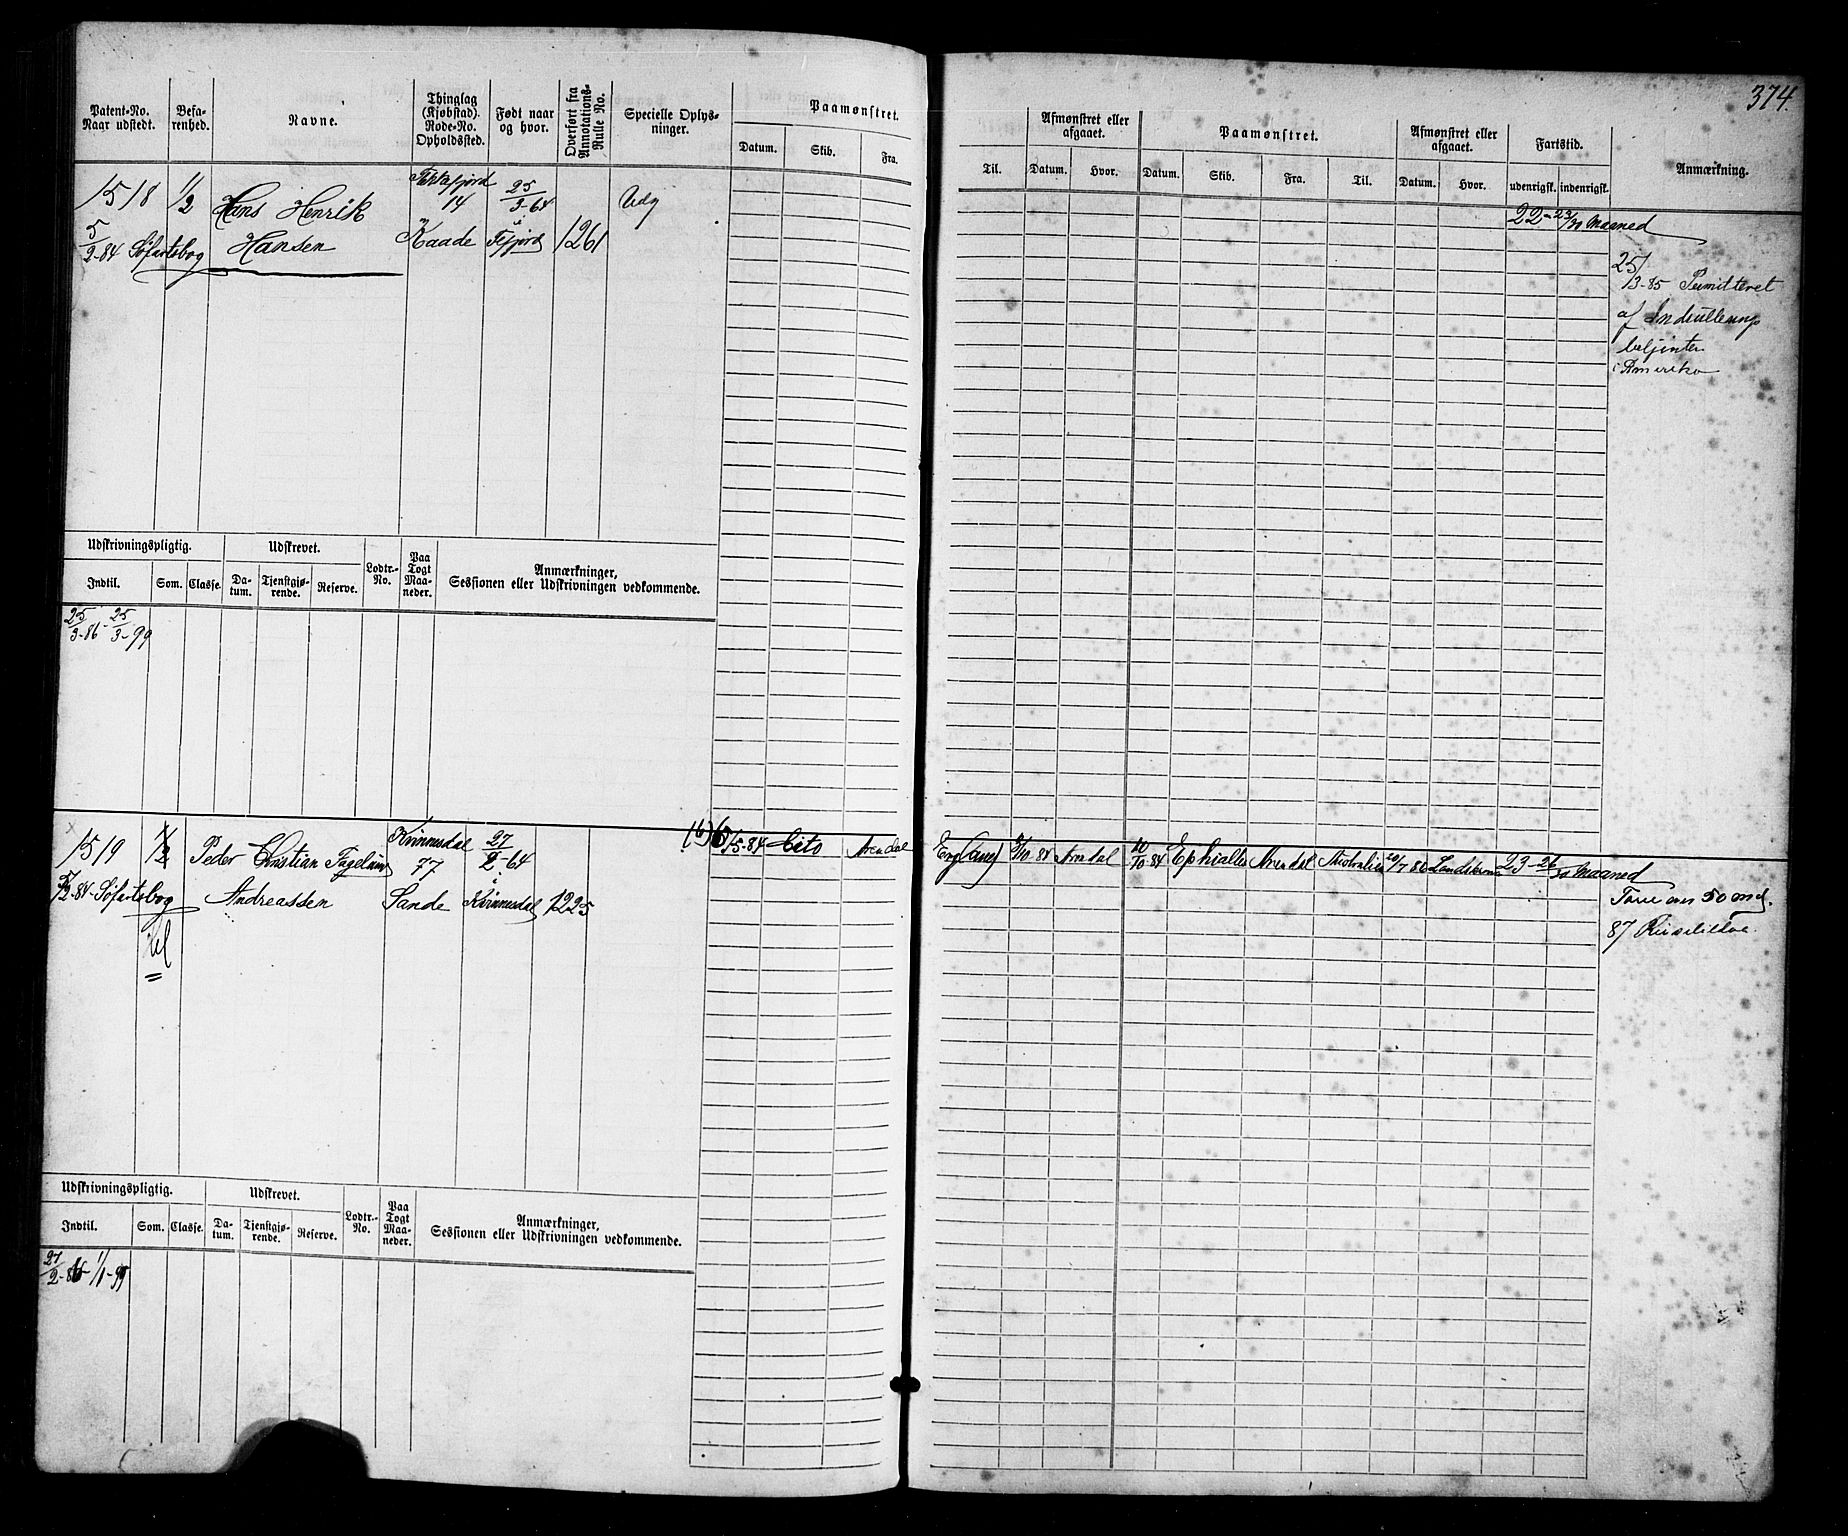 374.
Patent-No. Naar udstedt.
Befarenhed.
Navne.
Thinglag (Kjøbstad). Rode-No. Opholdssted.
Født naar og hvor.
Overført fra Annotations-Rulle No.
Specielle Oplysninger.
Paamønstret.
Datum. Skib. Fra.
Til.
Afmønstret eller afgaaet.
Datum. Hvor.
Paamønstret.
Datum. Skib. Fra. Til.
Afmønstret eller afgaaet.
Datum. Hvor.
Fartstid.
udenrigsk. indenrigsk.
Anmærkning.
1518 1/2 Hans Henrik 14 25/3-64 Udg
5/2-84 Søfartsbog Hansen Kaade i Fefjord 1261
22-23/30 Maaned
25/3-85 Permitteret
af
i Amerika
Udskrivningspligtig. Udskrevet. Lodtr.-No. Paa Togt Maaneder. Anmærkninger, Sessionen eller Udskrivningen vedkommende.
Indtil. Som. Classe. Datum. Tjenstgjørende. Reserve.
25/3-86 - 25/3-99
1519 1/2 Peder Christian Kvinnesdal 77 27/2-64 5/5-84 Cito Arendal
Eng(ang) /10-84 Arendal 10/10 84 Ephialtes Arendal Australien 20/7 86 Landskrona 23-26/30 Maaned
/2-84-Søfartsbog Andreassen Sande i Kvinnesdal 1225
50 md.
87
Udskrivningspligtig. Udskrevet. Lodtr.-No. Paa Togt Maaneder. Anmærkninger, Sessionen eller Udskrivningen vedkommende.
Indtil. Som. Classe. Datum. Tjenstgjørende. Reserve.
27/2-86 1/1-99